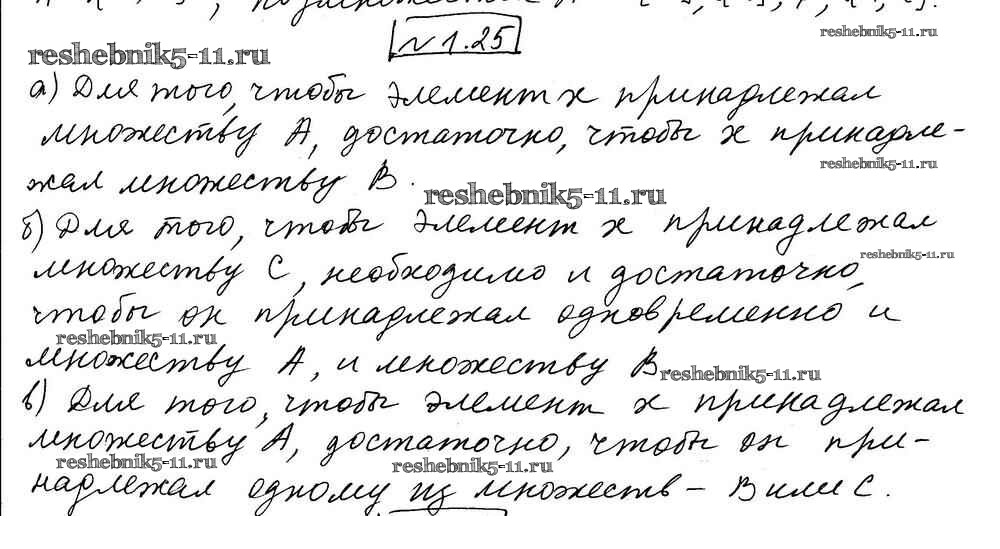 №1.25
reshebnik5-11.ru
reshebnik5-11.ru
а) Для того, чтобы элемент х принадлежал
множеству А, достаточно, чтобы х принадле-
reshebnik5-11.ru
жал множеству В.
reshebnik5-11.ru
б) Для того, чтобы элемент х принадлежал
reshebnik5-11.ru
множеству С, необходимо и достаточно,
чтобы он принадлежал одновременно и
reshebnik5-11.ru
множеству А, и множеству В
reshebnik5-11.ru
в) Для того, чтобы элемент х принадлежал
множеству А, достаточно, чтобы он при-
reshebnik5-11.ru
reshebnik5-11.ru
надлежал одному из множеств – В или С.